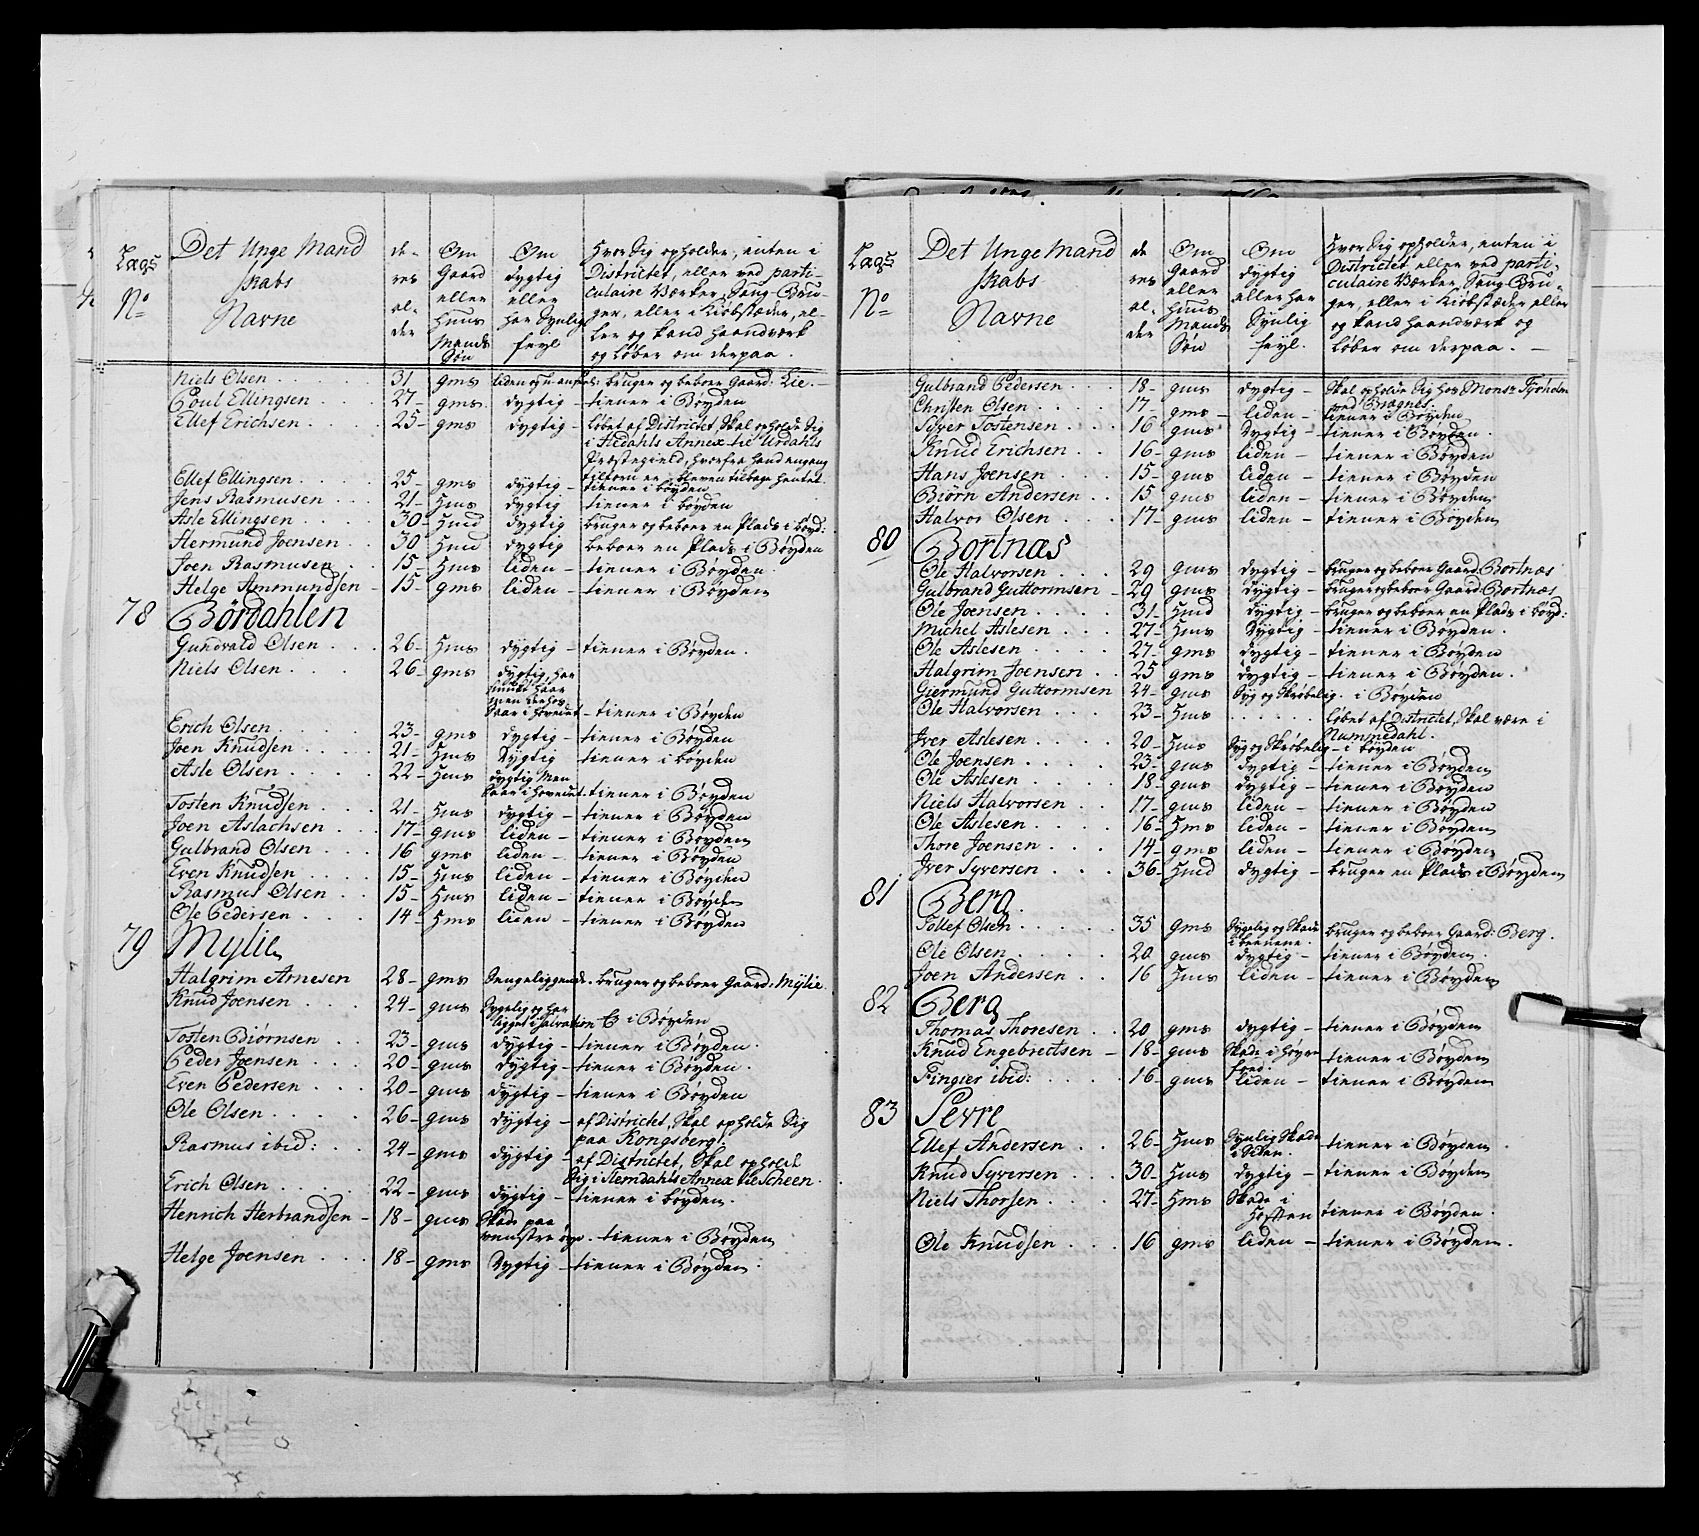 Lags No | Det Unge Mandskabs Navne | deres alder | Om Gaard eller Huus Mands Søn | Om dygtig eller har Synlig feyl | Hvor Sig opholder, enten i Districtet, eller ved particulaire Værker, Saug-Bruger, eller i Kiøbstæder, eller og kand haandværk og løber om derpaa.
Niels Olsen 31 gms liden bruger og beboer Gaard: Lie.
Poul Ellingsen 27 gms dygtig tiener i Bøyden
Ellef Erichsen 25 gms dygtig løbet af Districtet, Skal opholde Sig
i Hedahls Annex til Urdahls
Præstegield, hvorfra hand engang
tilforn er bleven tilbage hentet.
Ellef Ellingsen 25 gms dygtig tiener i bøyden
Jens Rasmusen 21 Hms dygtig tiener i bøyden
Asle Ellingsen 30 Hmd dygtig bruger og beboer en Plads i bøyd:
Hermund Joensen 30 Hmd dygtig beboer en Plads i Bøyden
Joen Rasmusen 15 Hms liden tiener i Bøyden
Helge Ammundsen 15 gms liden tiener i Bøyden
78 Bördahlen
Gundvald Olsen 26 Hms dygtig tiener i Bøyden.
Niels Olsen 26 gms dygtig, har
Saar i Hovedet tiener i Bøyden
Erich Olsen 23 gms dygtig tiener i Bøyden
Joen Knudsen 21 Hms Dygtig tiener i bøyden
Asle Olsen 22 Hms dygtig Men
Saar i Hovedet. tiener i Bøyden
Tosten Knudsen 21 Hms dygtig tiener i Bøyden
Joen Aslachsen 17 gms liden tiener i Bøyden
Gulbrand Olsen 16 gms liden tiener i Bøyden
Even Knudsen 15 Hms liden tiener i Bøyden
Rasmus Olsen 15 Hms liden tiener i Bøyden
Ole Pedersen 14 Hms liden tiener i Bøyden
79 Mylie
Halgrim Arnesen 28 gms Sengeliggende. bruger og beboer Gaard: Mylie.
Knud Joensen 24 gms Sygelig og har
ligget i Salvation i Bøyden
Tosten Biørnsen 23 gms dygtig tiener i Bøyden.
Peder Joensen 20 gms dygtig tiener i Bøyden.
Even Pedersen 20 gms dygtig tiener i Bøyden
Ole Olsen 26 gms dygtig af Districtet, Skal opholde Sig
paa Kongsberg.
Rasmus ibid: 24 gms dygtig af Districtet, Skal opholde
Sig i Slemdahls Annex til Scheen.
Erich Olsen 22 gms dygtig tiener i bøyden.
Henrich Herbrandsen 18 gms Skade paa
venstre øye. tiener i Bøyden
Helge Joensen 18 gms Dygtig tiener i Bøyden.
Lags No | Det Unge Mandskabs Navne | deres alder | Om Gaard eller Huus Mands Søn | Om dygtig eller har Synlig feyl. | Hvor Sig opholder, enten i Districtet eller ved particulaire Værker, Saug-Bruger, eller i Kiøbstæder eller og kand haandværk og løber om derpaa.
Gulbrand Pedersen 18 gms dygtig Skal opholde Sig hos Monsr
ved Bragnes.
Christen Olsen 17 gms liden tiener i Bøyden
Syver Tostensen 16 gms Dygtig tiener i Bøyden.
Knud Erichsen 16 gms liden tiener i Bøyden
Hans Joensen 15 gms liden tiener i Bøyden
Biørn Andersen 15 gms liden tiener i Bøyden
Halvor Olsen 17 gms liden tiener i Bøyden
80 Bortnæs
Ole Halvorsen 29 gms dygtig bruger og beboer Gaard: Bortnæs
Gulbrand Guttormsen 29 gms dygtig bruger og beboer Gaard: Bortnæs
Ole Joensen 31 Hmd dygtig bruger og beboer en Plads i bøyd:
Michel Aslesen 27 Hms Dygtig tiener i Bøyden.
Ole Aslesen 27 gms dygtig tiener i Bøyden
Halgrim Joensen 25 gms dygtig tiener i Bøyden.
Giermund Guttormsen 24 gms Syg og Skrøbelig. i Bøyden
Ole Halvorsen 23 Hms løbet af Districtet, Skal være i
Nummedahl.
Iver Aslesen 20 Hms Syg og Skrøbelig i bøyden
Ole Joensen 23 gms dygtig tiener i Bøyden
Ole Aslesen 18 gms dygtig tiener i Bøyden
Niels Halvorsen 17 gms liden tiener i Bøyden
Ole Aslesen 16 Hms liden tiener i Bøyden
Thore Joensen 14 gms liden tiener i Bøyden
Iver Syversen 36 Hmd dygtig bruger en Plads i Bøyden
81 Berg.
Tollef Olsen 35 gms Sygelig og Skade
i beenene. bruger og beboer Gaard: Berg.
Ole Olsen 20 gms dygtig tiener i Bøyden.
Joen Andersen 16 Hms liden tiener i Bøyden
82 Berg
Thomas Thoresen 20 gms dygtig tiener i Bøyden
Knud Engebrectsen 18 gms Skade i høyre
foed. tiener i Bøyden
Fingier ibid: 16 gms liden tiener i Bøyden
83 Sevre
Ellef Andersen 26 Hms Synlig Skade
i Siden. tiener i Bøyden
Knud Syversen 30 Hms dygtig tiener i Bøyden
Niels Thorsen 27 Hms Skade i
Hoften tiener i Bøyden
Ole Knudsen 16 gms liden tiener i Bøyden.